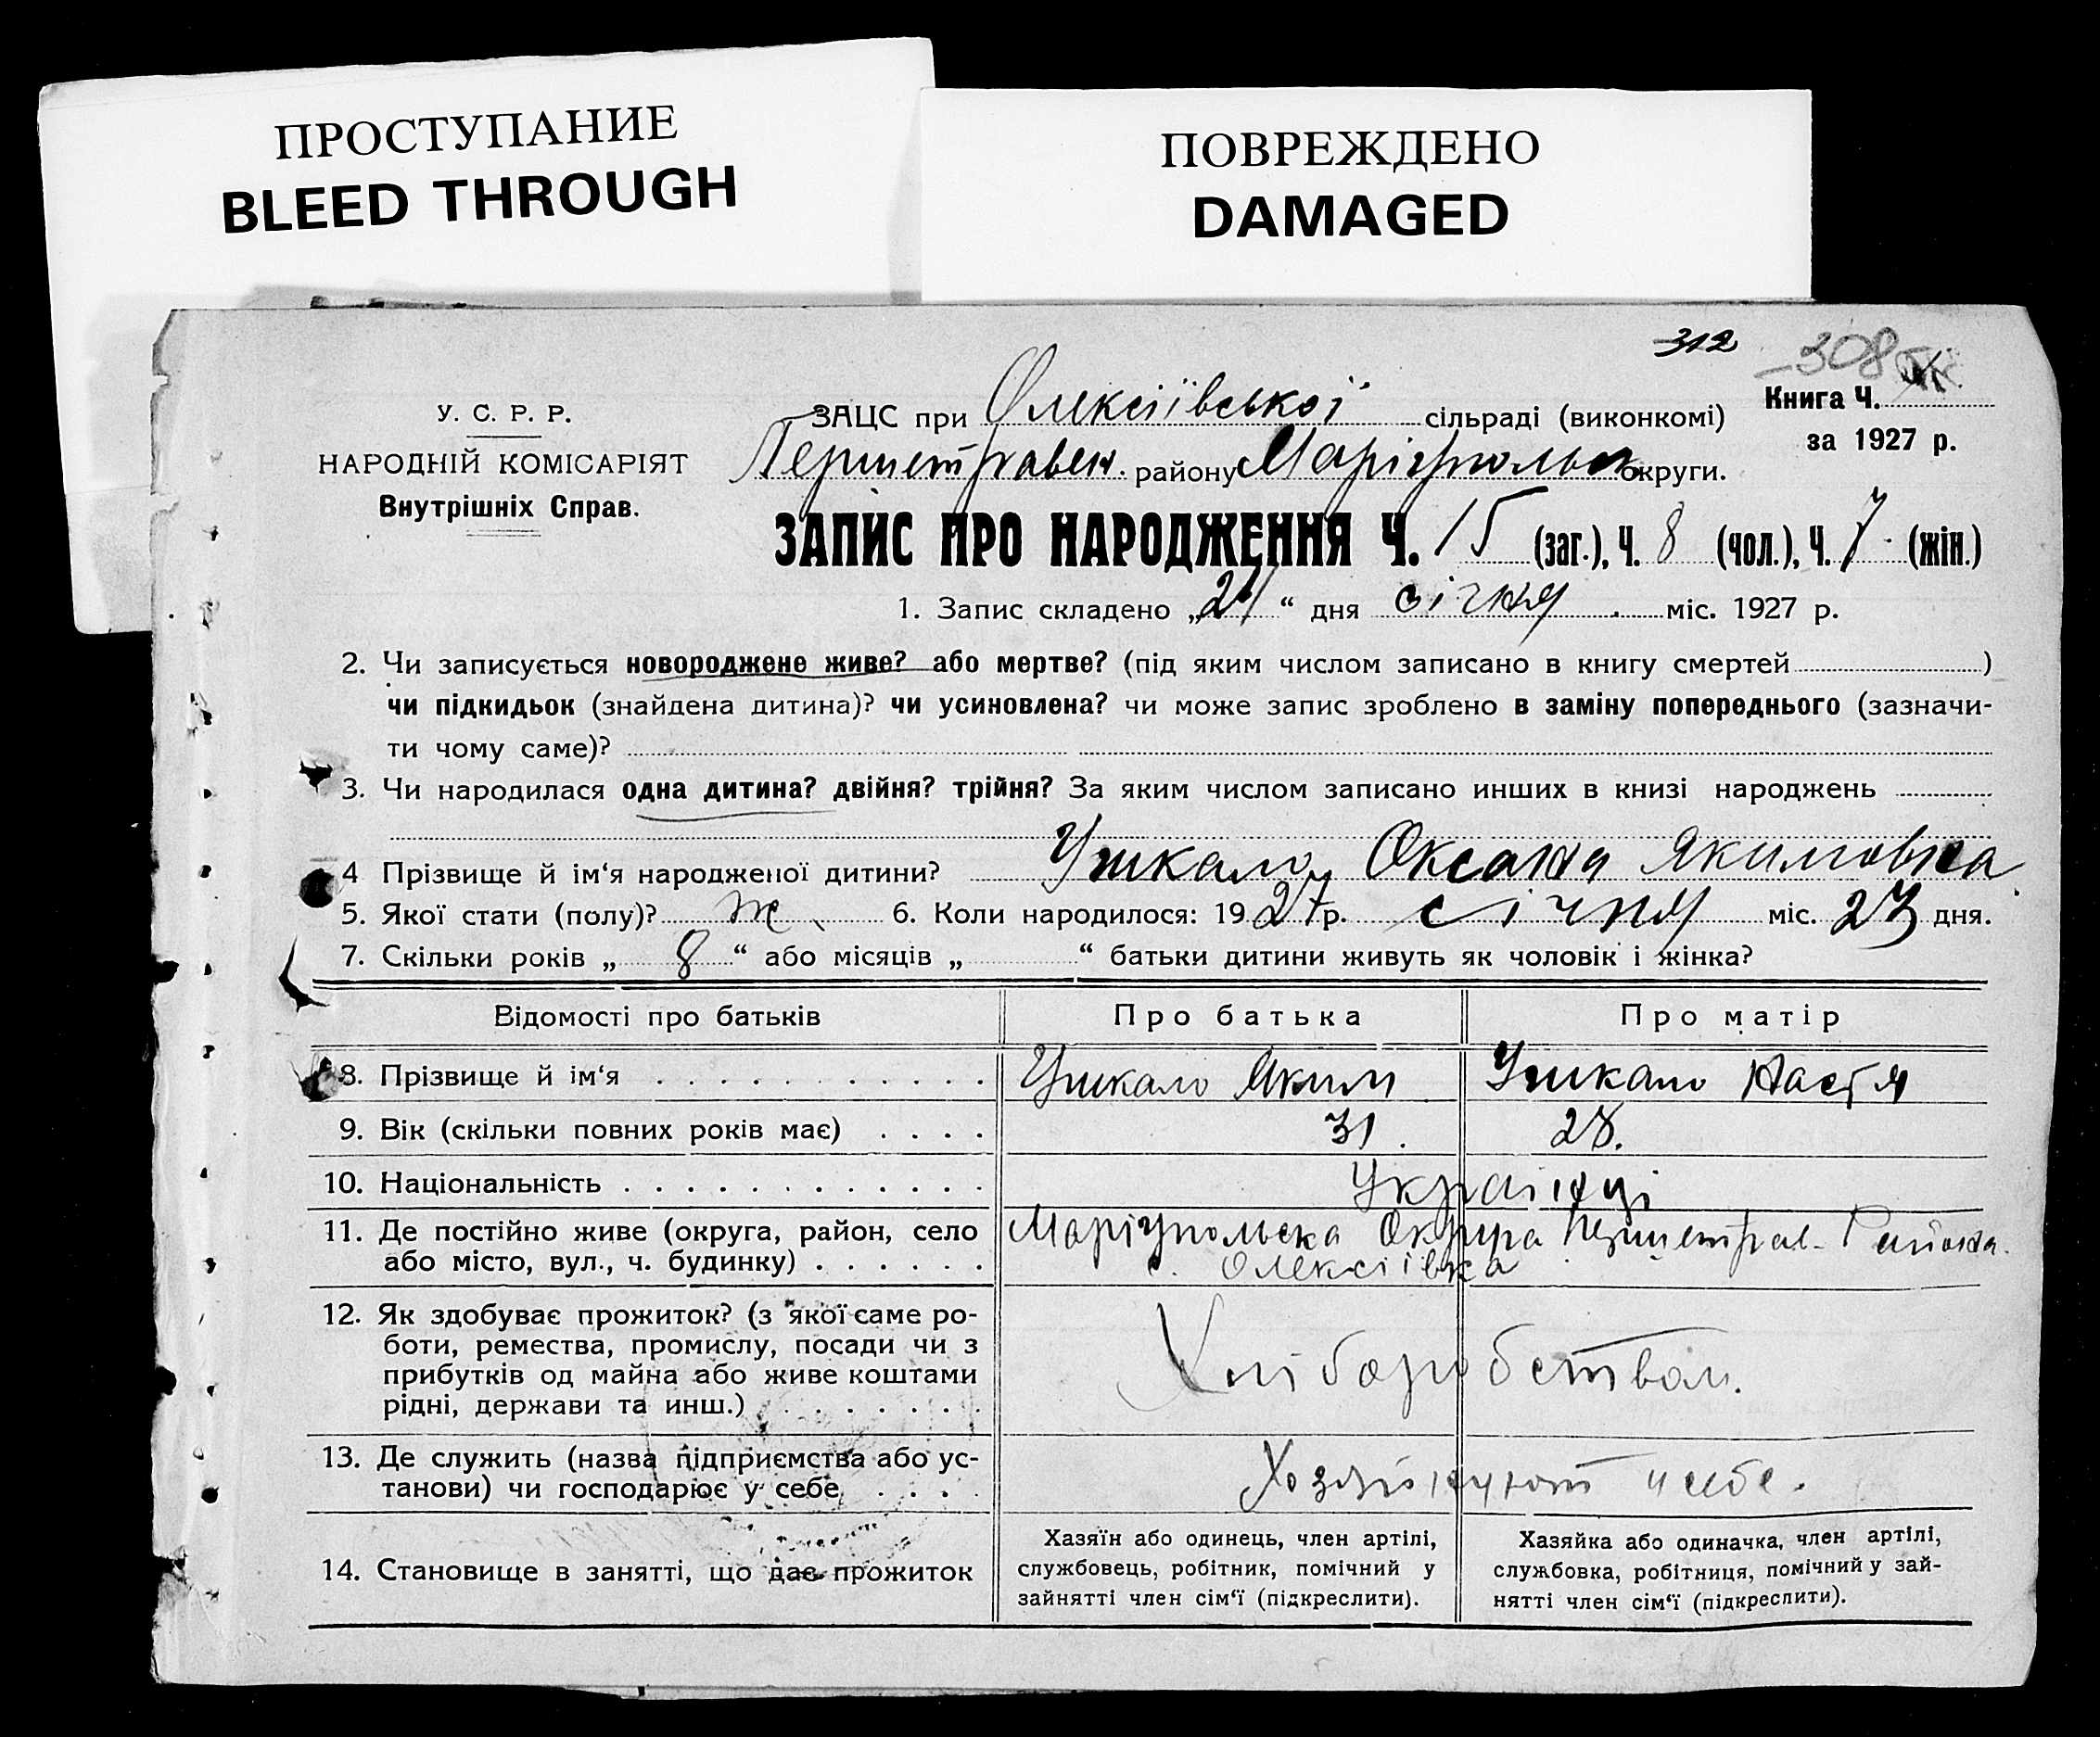 ПРОСТУПАНИЕ
BLEED THROUGH
ПОВРЕЖДЕНО
DAMAGED
312
308
У. С. Р. Р.
НАРОДНІЙ КОМІСАРІЯТ
Внутрішніх Справ.
ЗАЦС при Олексіївської сільраді (виконкомі)
Першетравен. району Маріупольск округи.
Книга Ч.
за 1927 р.
ЗАПИС ПРО НАРОДЖЕННЯ Ч. 15 (заг.), Ч. 8 (чол.), Ч. 7 (жін.)
1. Запис складено „ “ дня січня міс. 1927 р.
2. Чи записується новороджене живе? або мертве? (під яким числом записано в книгу смертей )
чи підкидьок (знайдена дитина)? чи усиновлена? чи може запис зроблено в заміну попереднього (зазначи-
ти чому саме)?
3. Чи народилася одна дитина? двійня? трійня? За яким числом записано инших в книзі народжень
4 Прізвище й ім‘я народженої дитини? Ушкало Оксана Якимовна
5. Якої стати (полу)? ж 6. Коли народилося: 1927р. січня міс. 23 дня.
7. Скільки років „ 8 “ або місяців „ “ батьки дитини живуть як чоловік і жінка?
Відомості про батьків Про батька Про матір
8. Прізвище й ім‘я Ушкало Яким Ушкало Настя
9. Вік (скільки повних років має) 31. 28.
10. Національність Українці
11. Де постійно живе (округа, район, село
або місто, вул., ч. будинку)
Маріупольска Округа Першетрав- Района
с. Олексіївка
12. Як здобуває прожиток? (з якої саме ро-
боти, ремества, промислу, посади чи з
прибутків од майна або живе коштами
рідні, держави та инш.)
Хліборобством.
13. Де служить (назва підприємства або ус-
танови) чи господарює у себе
Хозяїнуют у себе.
14. Становище в занятті, що дає прожиток
Хазяїн або одинець, член артілі,
службовець, робітник, помічний у
зайнятті член сім‘ї (підкреслити).
Хазяйка або одиначка, член артілі,
службовка, робітниця, помічний у зай-
нятті член сім‘ї (підкреслити).